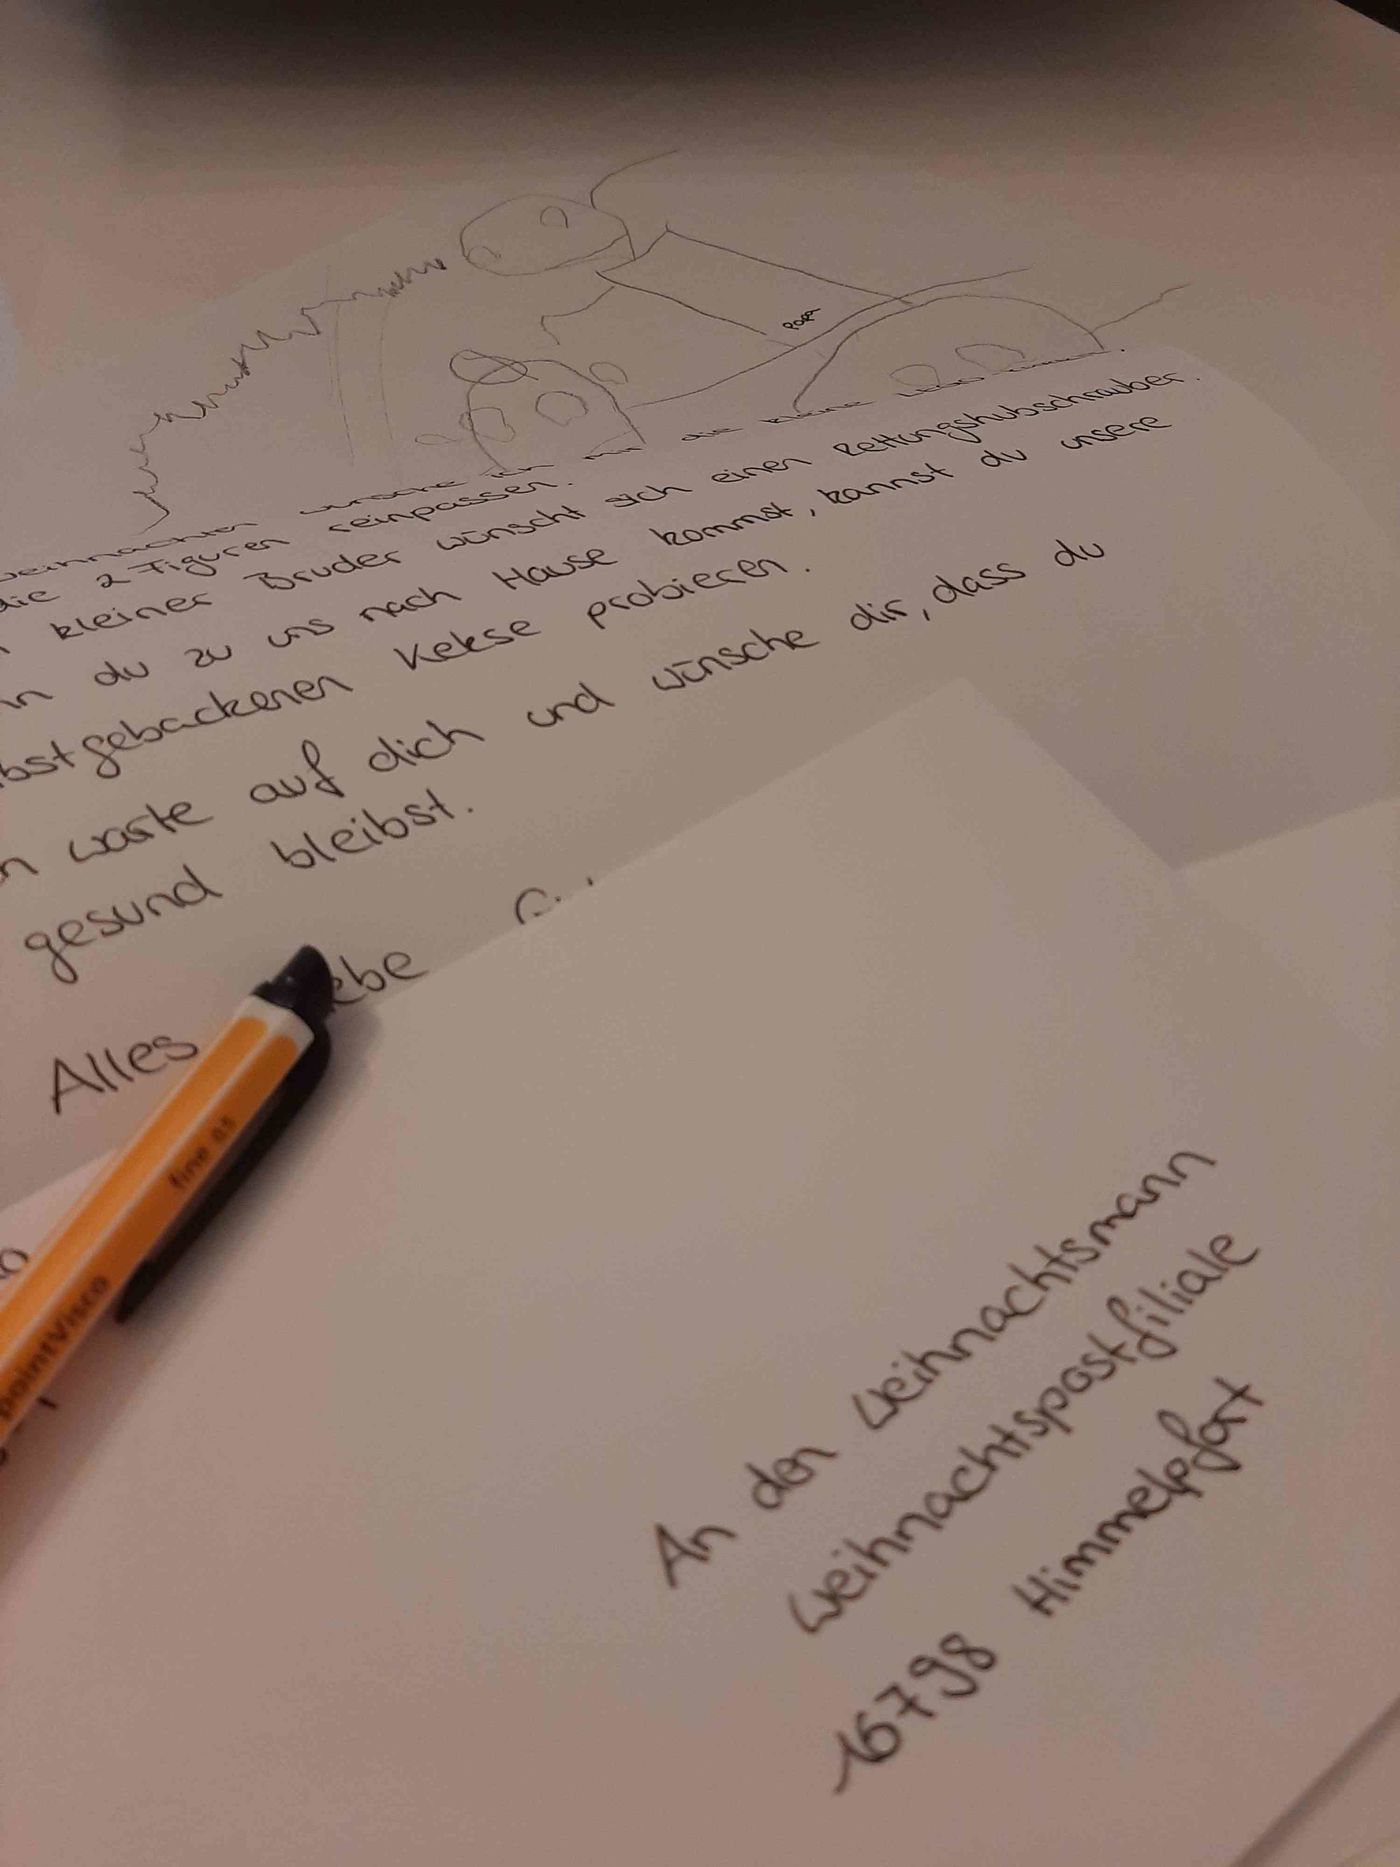 Papa
weihnachten wünsche ich mir die kleine
die 2 Figuren reinpassen.
kleiner Bruder wünscht sich einen Rettungshubschrauber.
du zu uns nach Hause kommst, kannst du unsere
bstgebackenen Kekse probieren.
warte auf dich und wünsche dir, dass du
gesund bleibst.
Alles ebe
fine 0.5
pointVisco
An den Weihnachtsmann
Weihnachtspostfiliale
16798 Himmelpfort